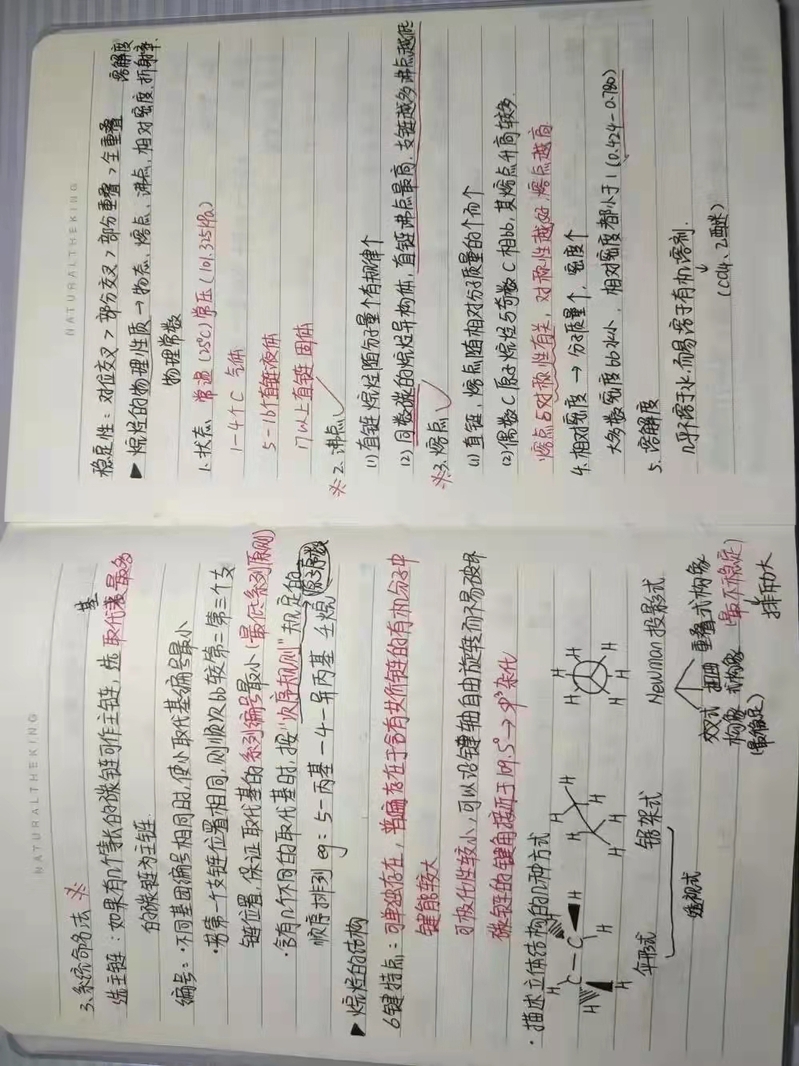 NATURALTHEKING
3.系统命名法 ※
选主链：如果有几个等长的碳链可作主链，选取代基最多
的碳链为主链.
编号：·不同基团编号相同时，使小取代基编号最小
·若第一个支链位置相同，则顺次bb较第二第三个支
链位置，保证取代基的系列编号最小(最低系列原则)
·含有几个不同的取代基时，按"次序规则"规定的→原子序数
顺序排列 eg：5-丙基-4-异丙基壬烷
▶ 烷烃的结构
6键特点：可单独存在，普遍存在于含有共价键的有机分子中
键能较大
可极化性较小，可以沿键轴自由旋转而不易破坏
碳链的键角接近于109.5°→sp³杂化
·描述立体结构的几种方式
H H C-C H H H H
H H H H H H
H H H H H H
伞形式 锯架式 Newman投影式
透视式
交叉式构象(最稳定) 扭曲式构象 重叠式构象(最不稳定)
排斥力大
NATURALTHEKING
稳定性：对位交叉>部分交叉>部分重叠>全重叠
▶ 烷烃的物理性质→物态、熔点、沸点、相对密度、折射率、溶解度
物理常数
1.状态 常温(25℃)常压(101.325kPa)
1-4个C 气体
5-16直链液体
17以上直链 固体
※2.沸点
(1)直链烷烃随分子量个有规律个
(2)同数碳的烷烃异构体，直链沸点最高，支链越多沸点越低
※3.熔点
(1)直链，熔点随相对分子质量的个而个
(2)偶数C原子烷烃与奇数C相bb，其熔点升高较多.
熔点与对称性有关，对称性越好，熔点越高
4.相对密度→分子质量个，密度个
大多数密度bb水小，相对密度都小于1(0.424-0.780)
5.溶解度
几乎不溶于水，而易溶于有机溶剂.
(CCl4、乙醚)